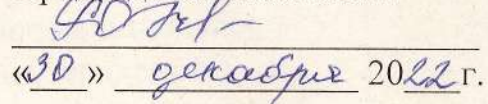 «30» декабря 2022 г.